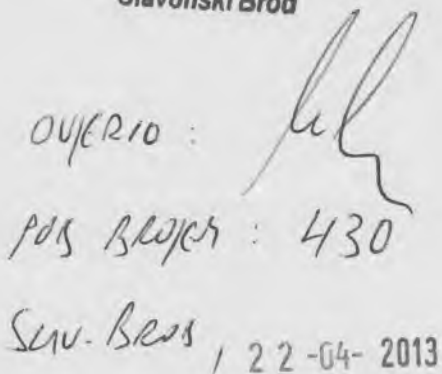 Slavonski Brod
OVJERIO :
POD BROJEM : 430
SLAV. BROD , 22 -04- 2013